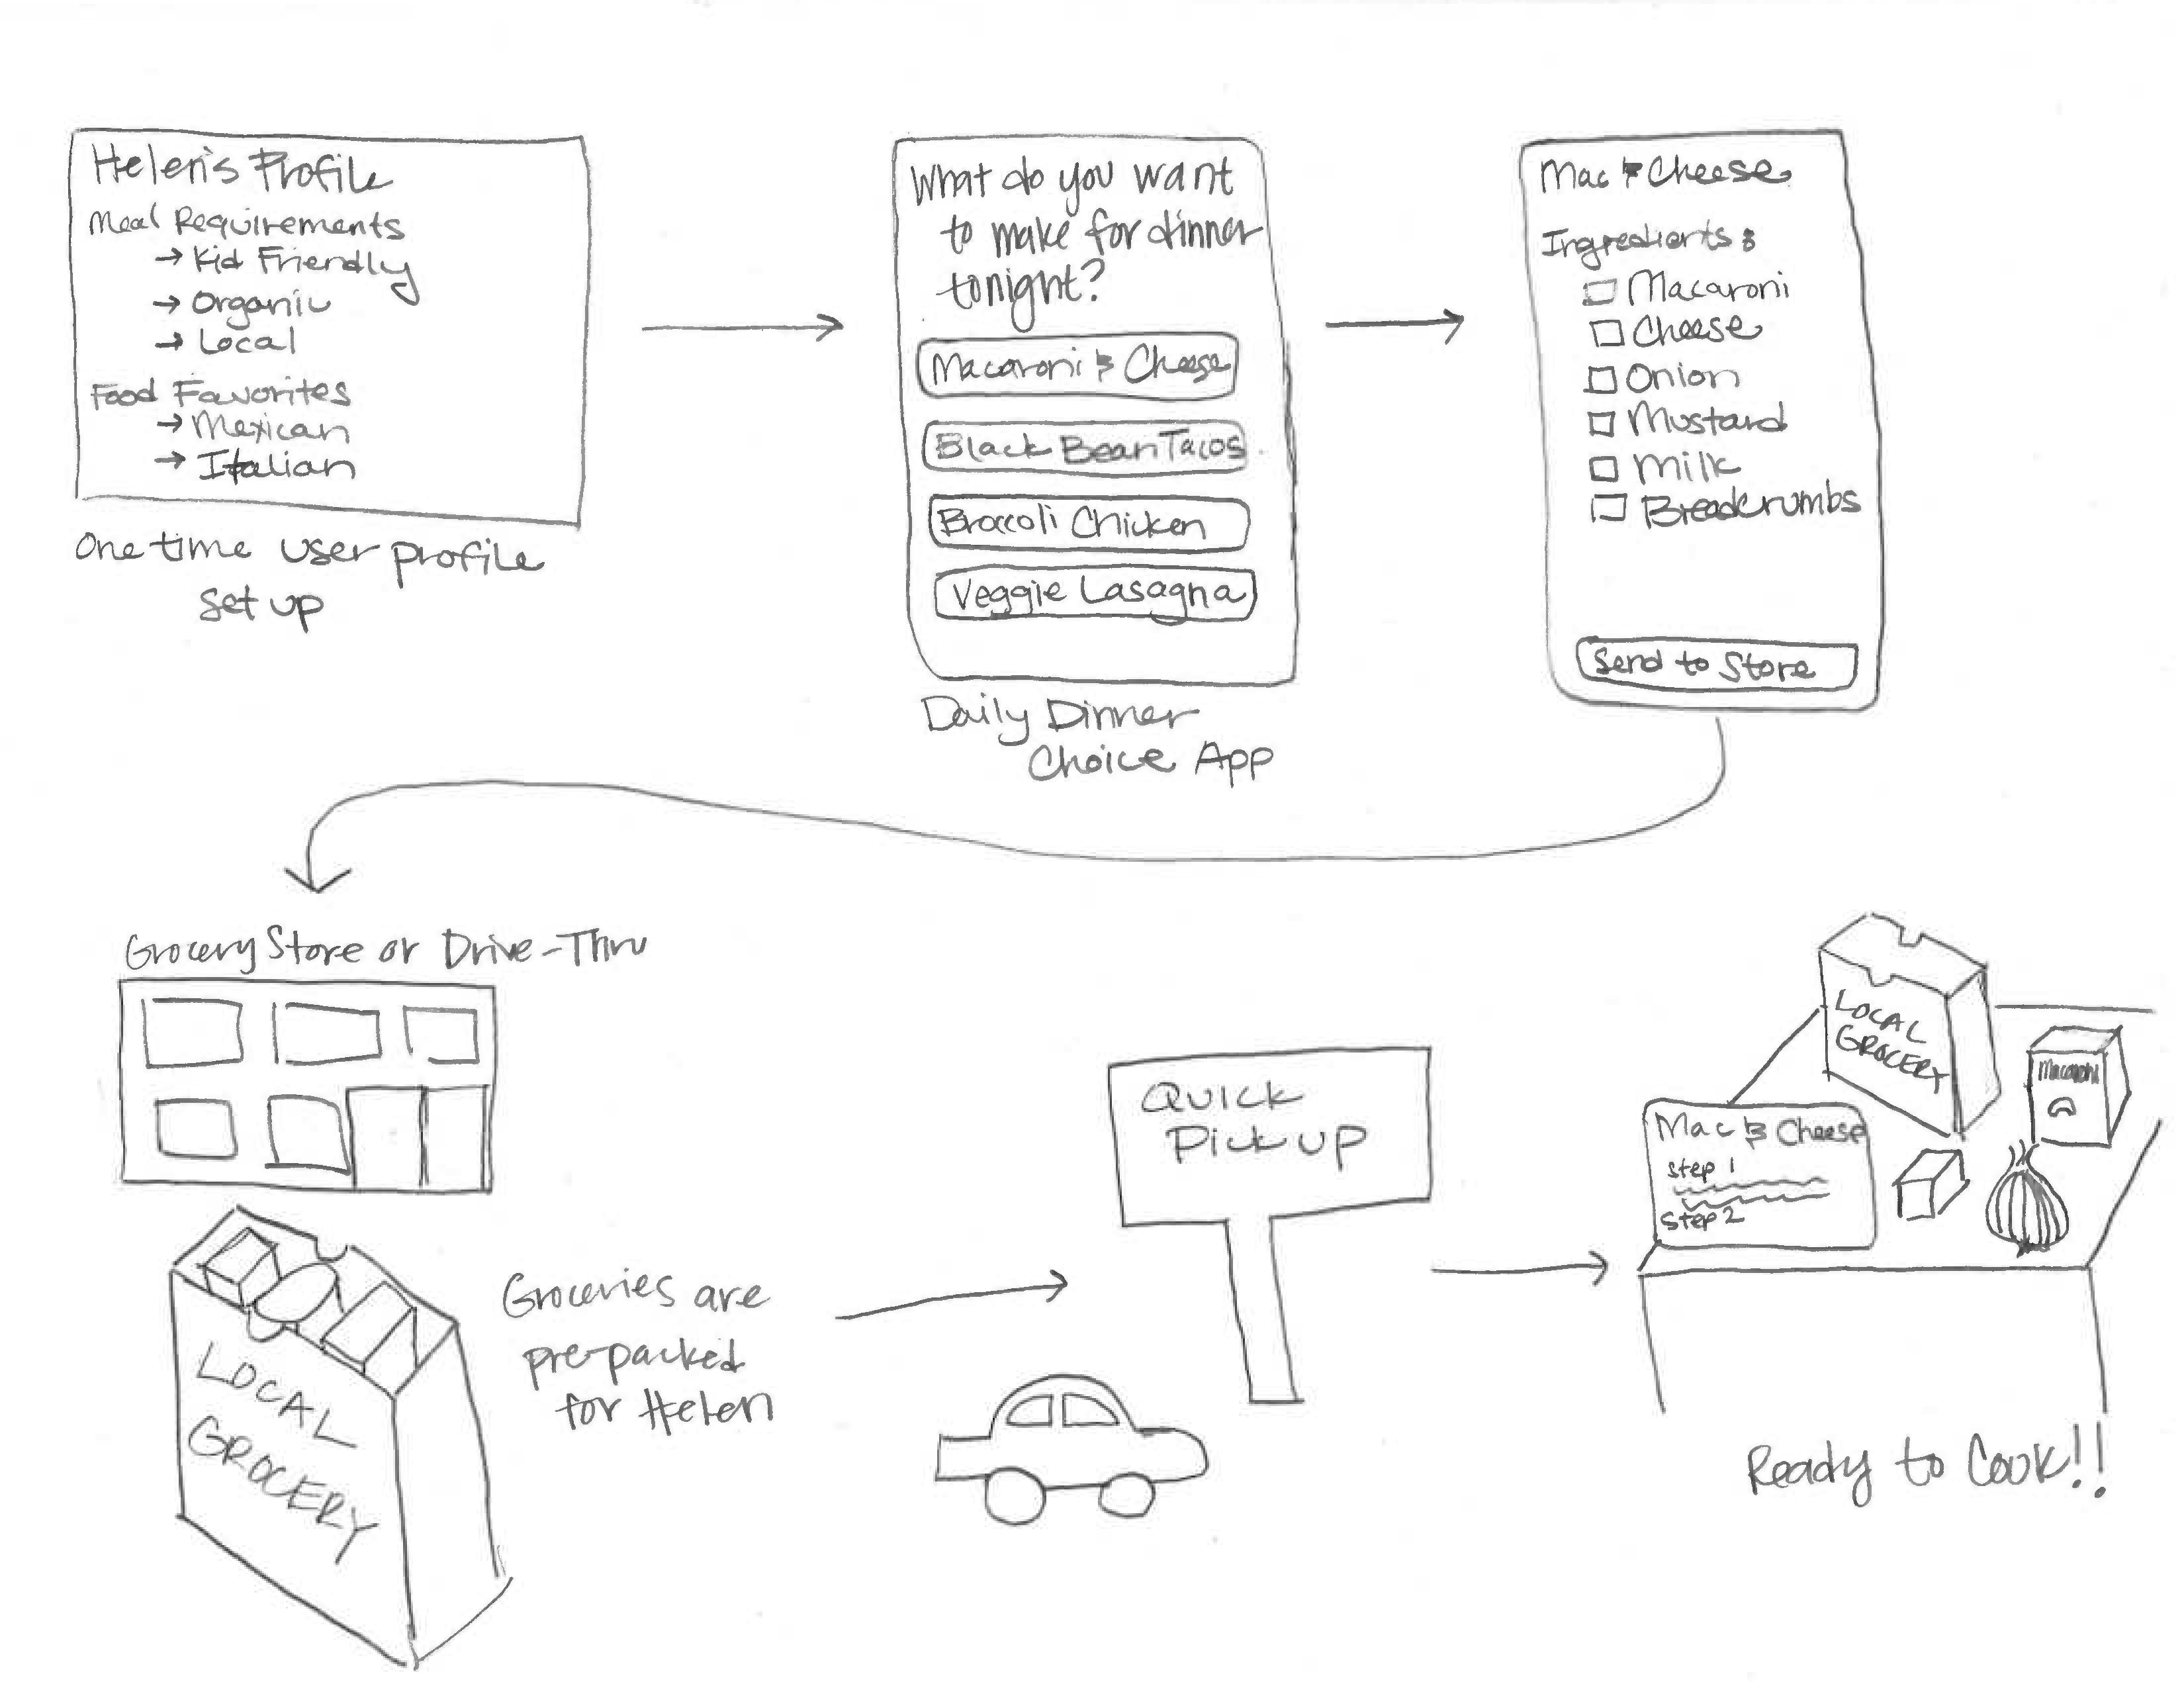 Helen's Profile
Meal Requirements
→ Kid Friendly
→ Organic
→ Local
Food Favorites
→ Mexican
→ Italian
One time user profile
set up
What do you want
to make for dinner
tonight?
Macaroni & Cheese
Black Bean Tacos
Broccoli Chicken
Veggie Lasagna
Daily Dinner
Choice App
Mac & Cheese
Ingredients:
Macaroni
Cheese
Onion
Mustard
Milk
Breadcrumbs
Send to Store
Grocery Store or Drive-Thru
LOCAL
GROCERY
Groceries are
pre-packed
for Helen
Quick
Pick up
LOCAL
GROCERY
Macaroni
Mac & Cheese
Step 1
Step 2
Ready to Cook!!